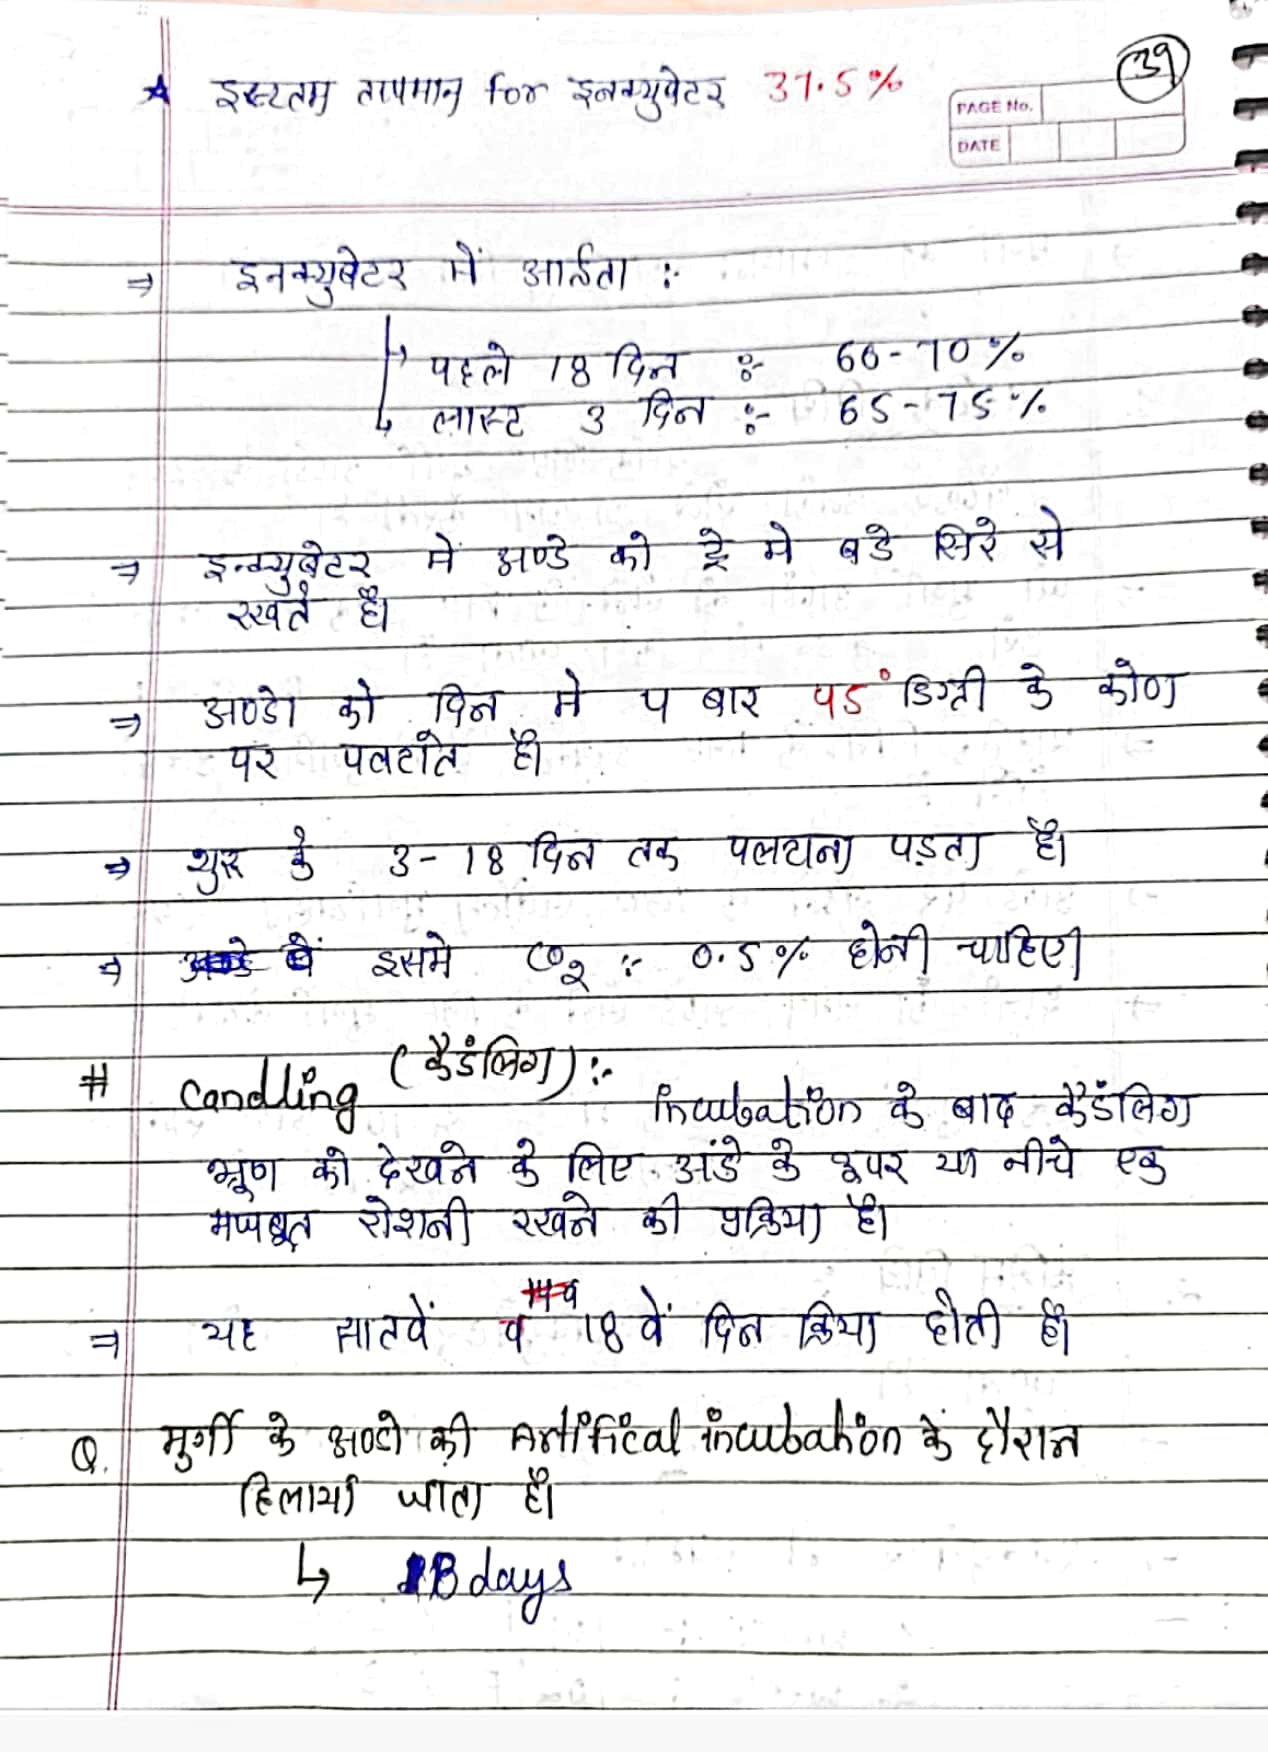 39
★ इस्टतम तापमान for इनक्युबेटर 37.5%
PAGE No.
DATE
⇒ इनक्युबेटर में आर्द्रता :-
↳ पहले 18 दिन :- 60-70%
↳ लास्ट 3 दिन :- 65-75%
⇒ इन्क्युबेटर में अण्डे को ट्रे मे बडे सिरे से
रखते है।
⇒ अण्डो को दिन मे 4 बार 45° डिग्री के कोण
पर पलटाते है।
⇒ शुरू के 3-18 दिन तक पलटाना पड़ता है।
⇒ इसमे CO2 :- 0.5% होनी चाहिए।
# Candling (कैडंलिग) :-
incubation के बाद कैडंलिग
भ्रूण को देखने के लिए अंडे के ऊपर या नीचे एक
मजबूत रोशनी रखने की प्रक्रिया है।
⇒ यह सातवें व 18 वें दिन क्रिया होती है।
Q. मुर्गी के अण्डो की Artifical incubation के दौरान
हिलाया जाता है।
↳ 18 days